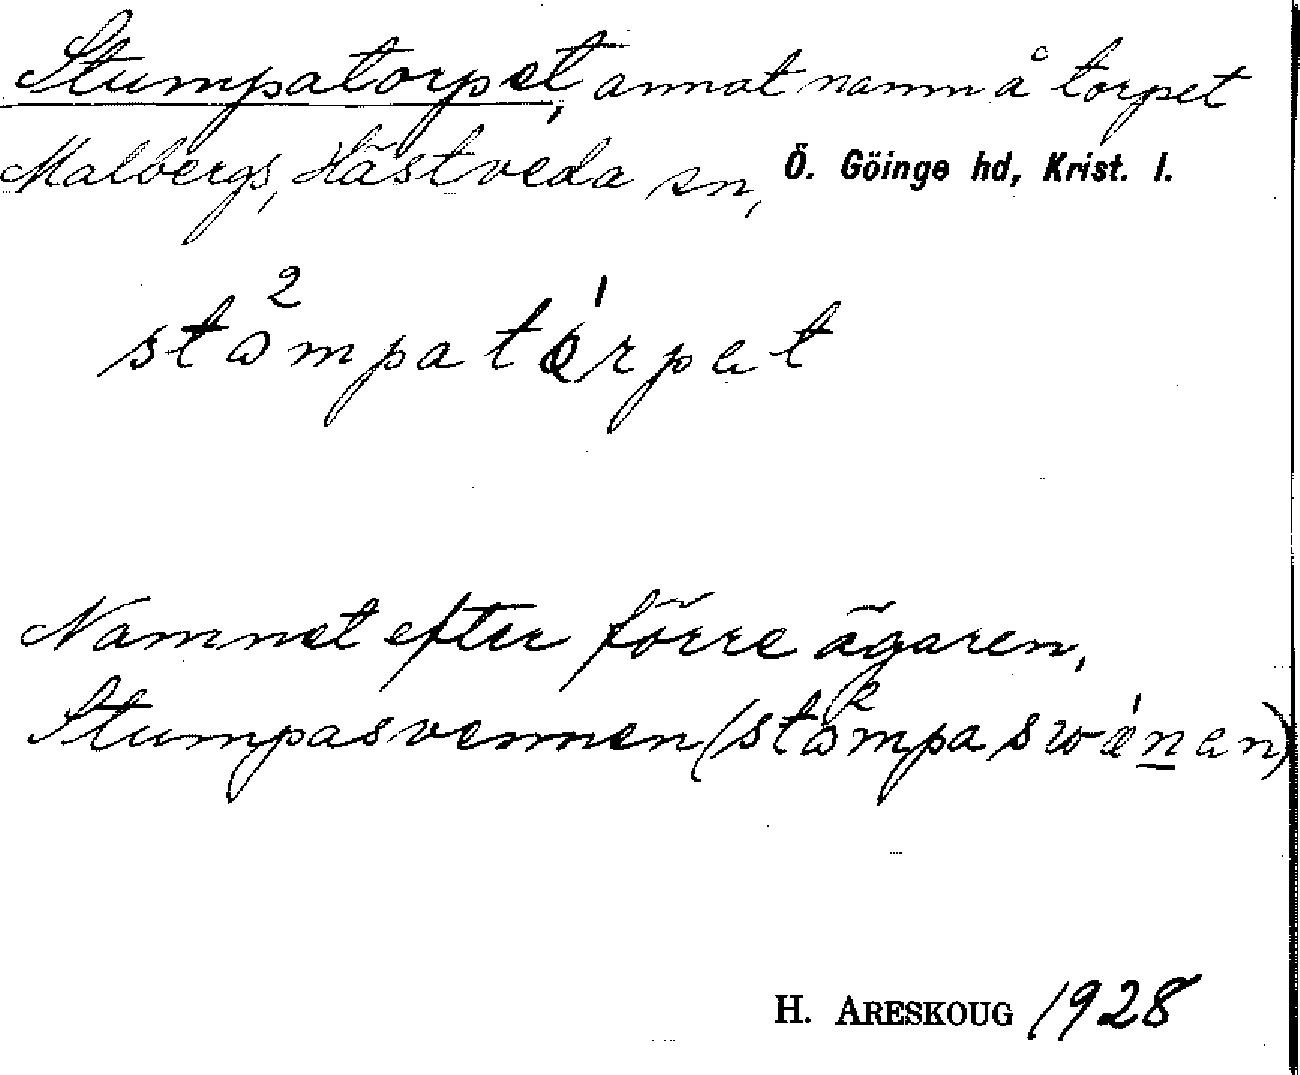 Stumpatorpet, annat namn å torpet
Malbergs, Hästveda sn, Ö. Göinge hd, Krist. l.
stò²mpatò¹rpet
Namnet efter förre ägaren,
Stumpasvennen (stò²mpaswè¹nen)
H. ARESKOUG 1928